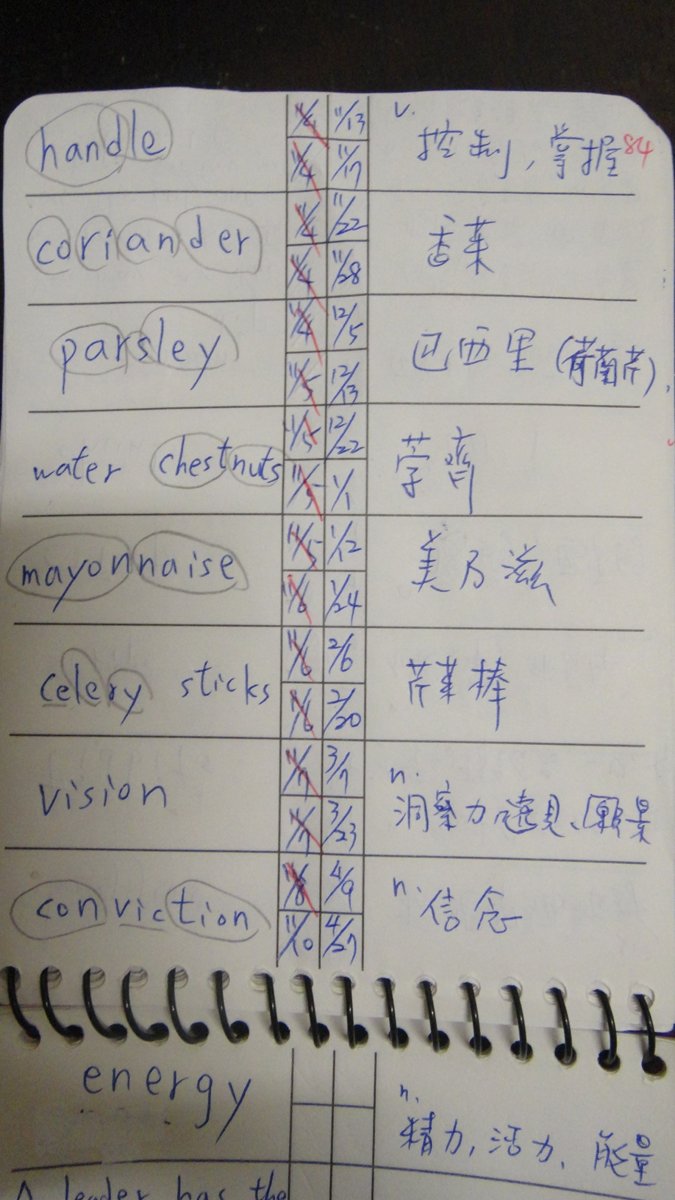 handle 11/4 11/13 v. 控制,掌握 84
11/4 11/17
coriander 11/4 11/22 香菜
11/4 11/28
parsley 11/4 12/5 巴西里(葡蔔芹),
11/5 12/13
water chestnuts 11/5 12/22 荸薺
11/5 1/1
mayonnaise 11/5 1/12 美乃滋
11/6 1/24
celery sticks 11/6 2/6 芹菜棒
11/6 2/20
vision 11/7 3/7 n.
11/7 3/23 洞察力,遠見、願景
conviction 11/8 4/9 n. 信念
11/10 4/27
energy n.
精力,活力、能量
A leader has the